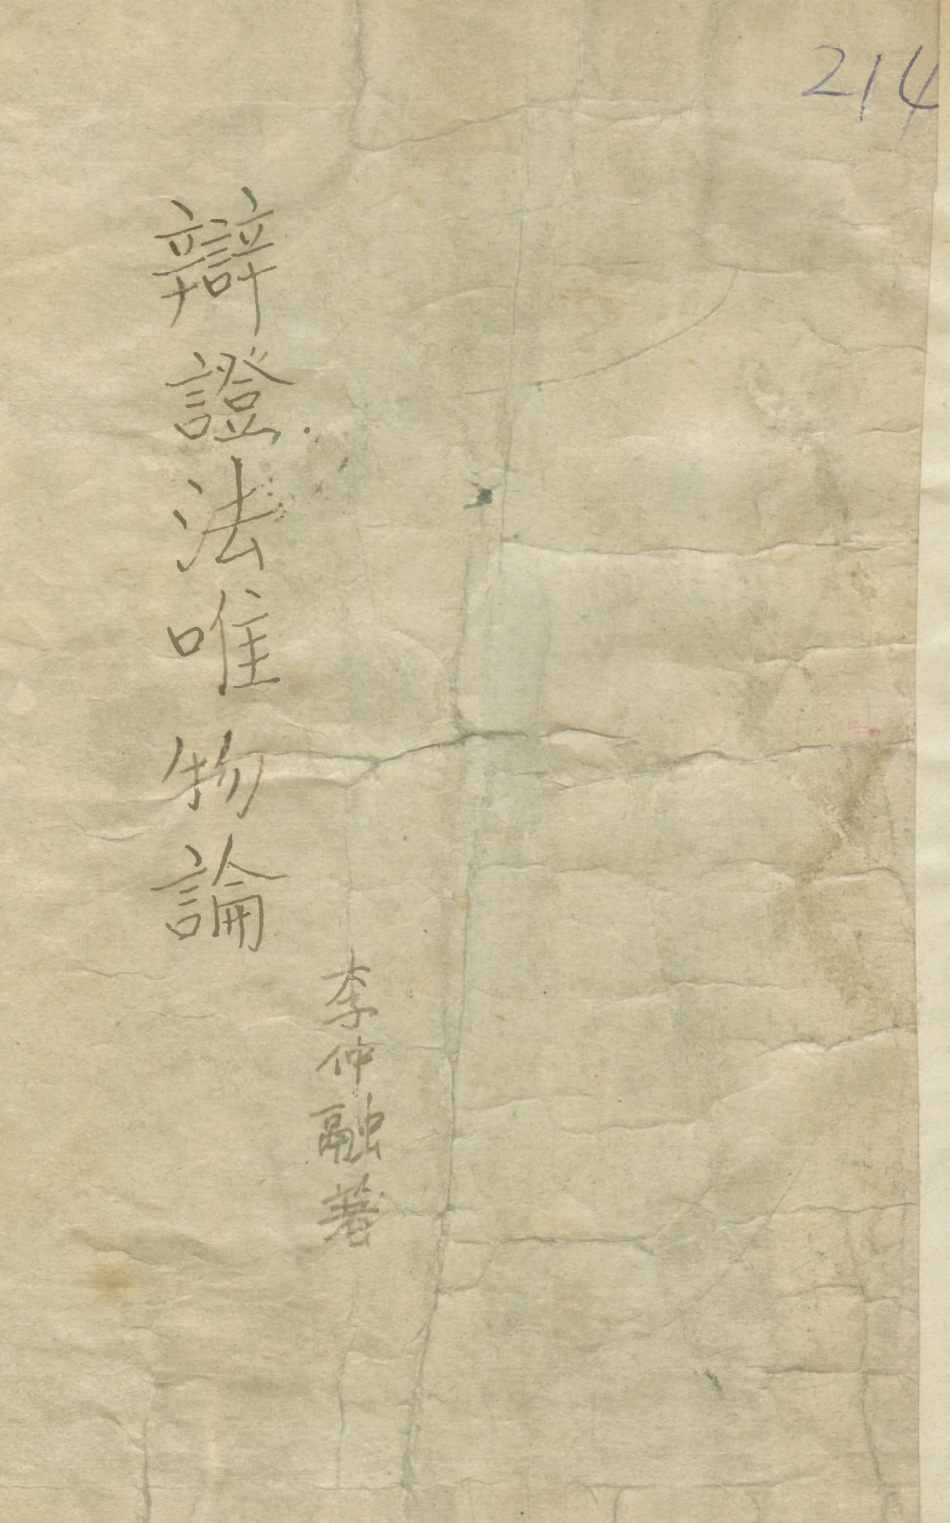 214
辯證法唯物論
李仲融著